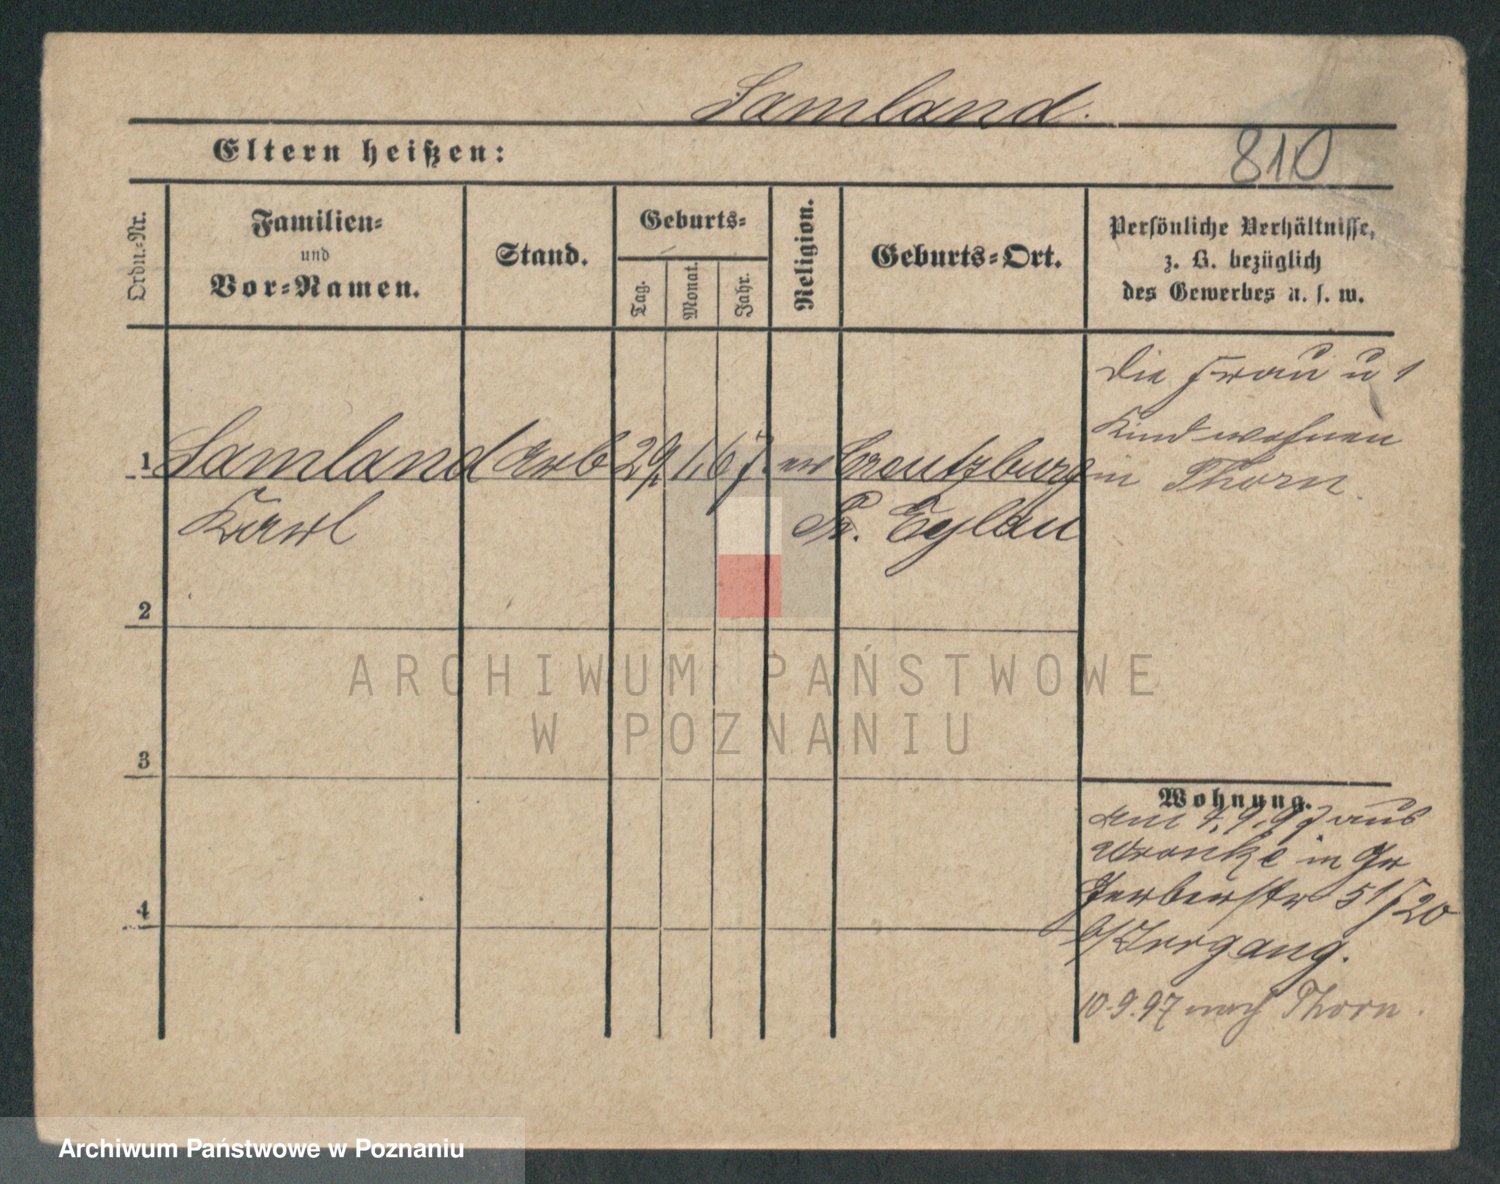 Samland.
810
Eltern heißen:
Ordn.-Nr.
Familien-
und
Vor-Namen.
Stand.
Geburts-
Tag.
Monat.
Jahr.
Religion.
Geburts-Ort.
Persönliche Verhältnisse,
z. B. bezüglich
des Gewerbes u. s. w.
die Frau u 1
Kind wohnen
in Thorn.
1 Samland Arb 29. 1. 67. ev Creutzburg
Karl Pr. Eylau
2
3
4
Wohnung.
am 4. 9. 97 aus
Wronke in Gr
Gerberstr 51/20
b/
10.9.97 nach Thorn.
ARCHIWUM PAŃSTWOWE
W POZNANIU
Archiwum Państwowe w Poznaniu